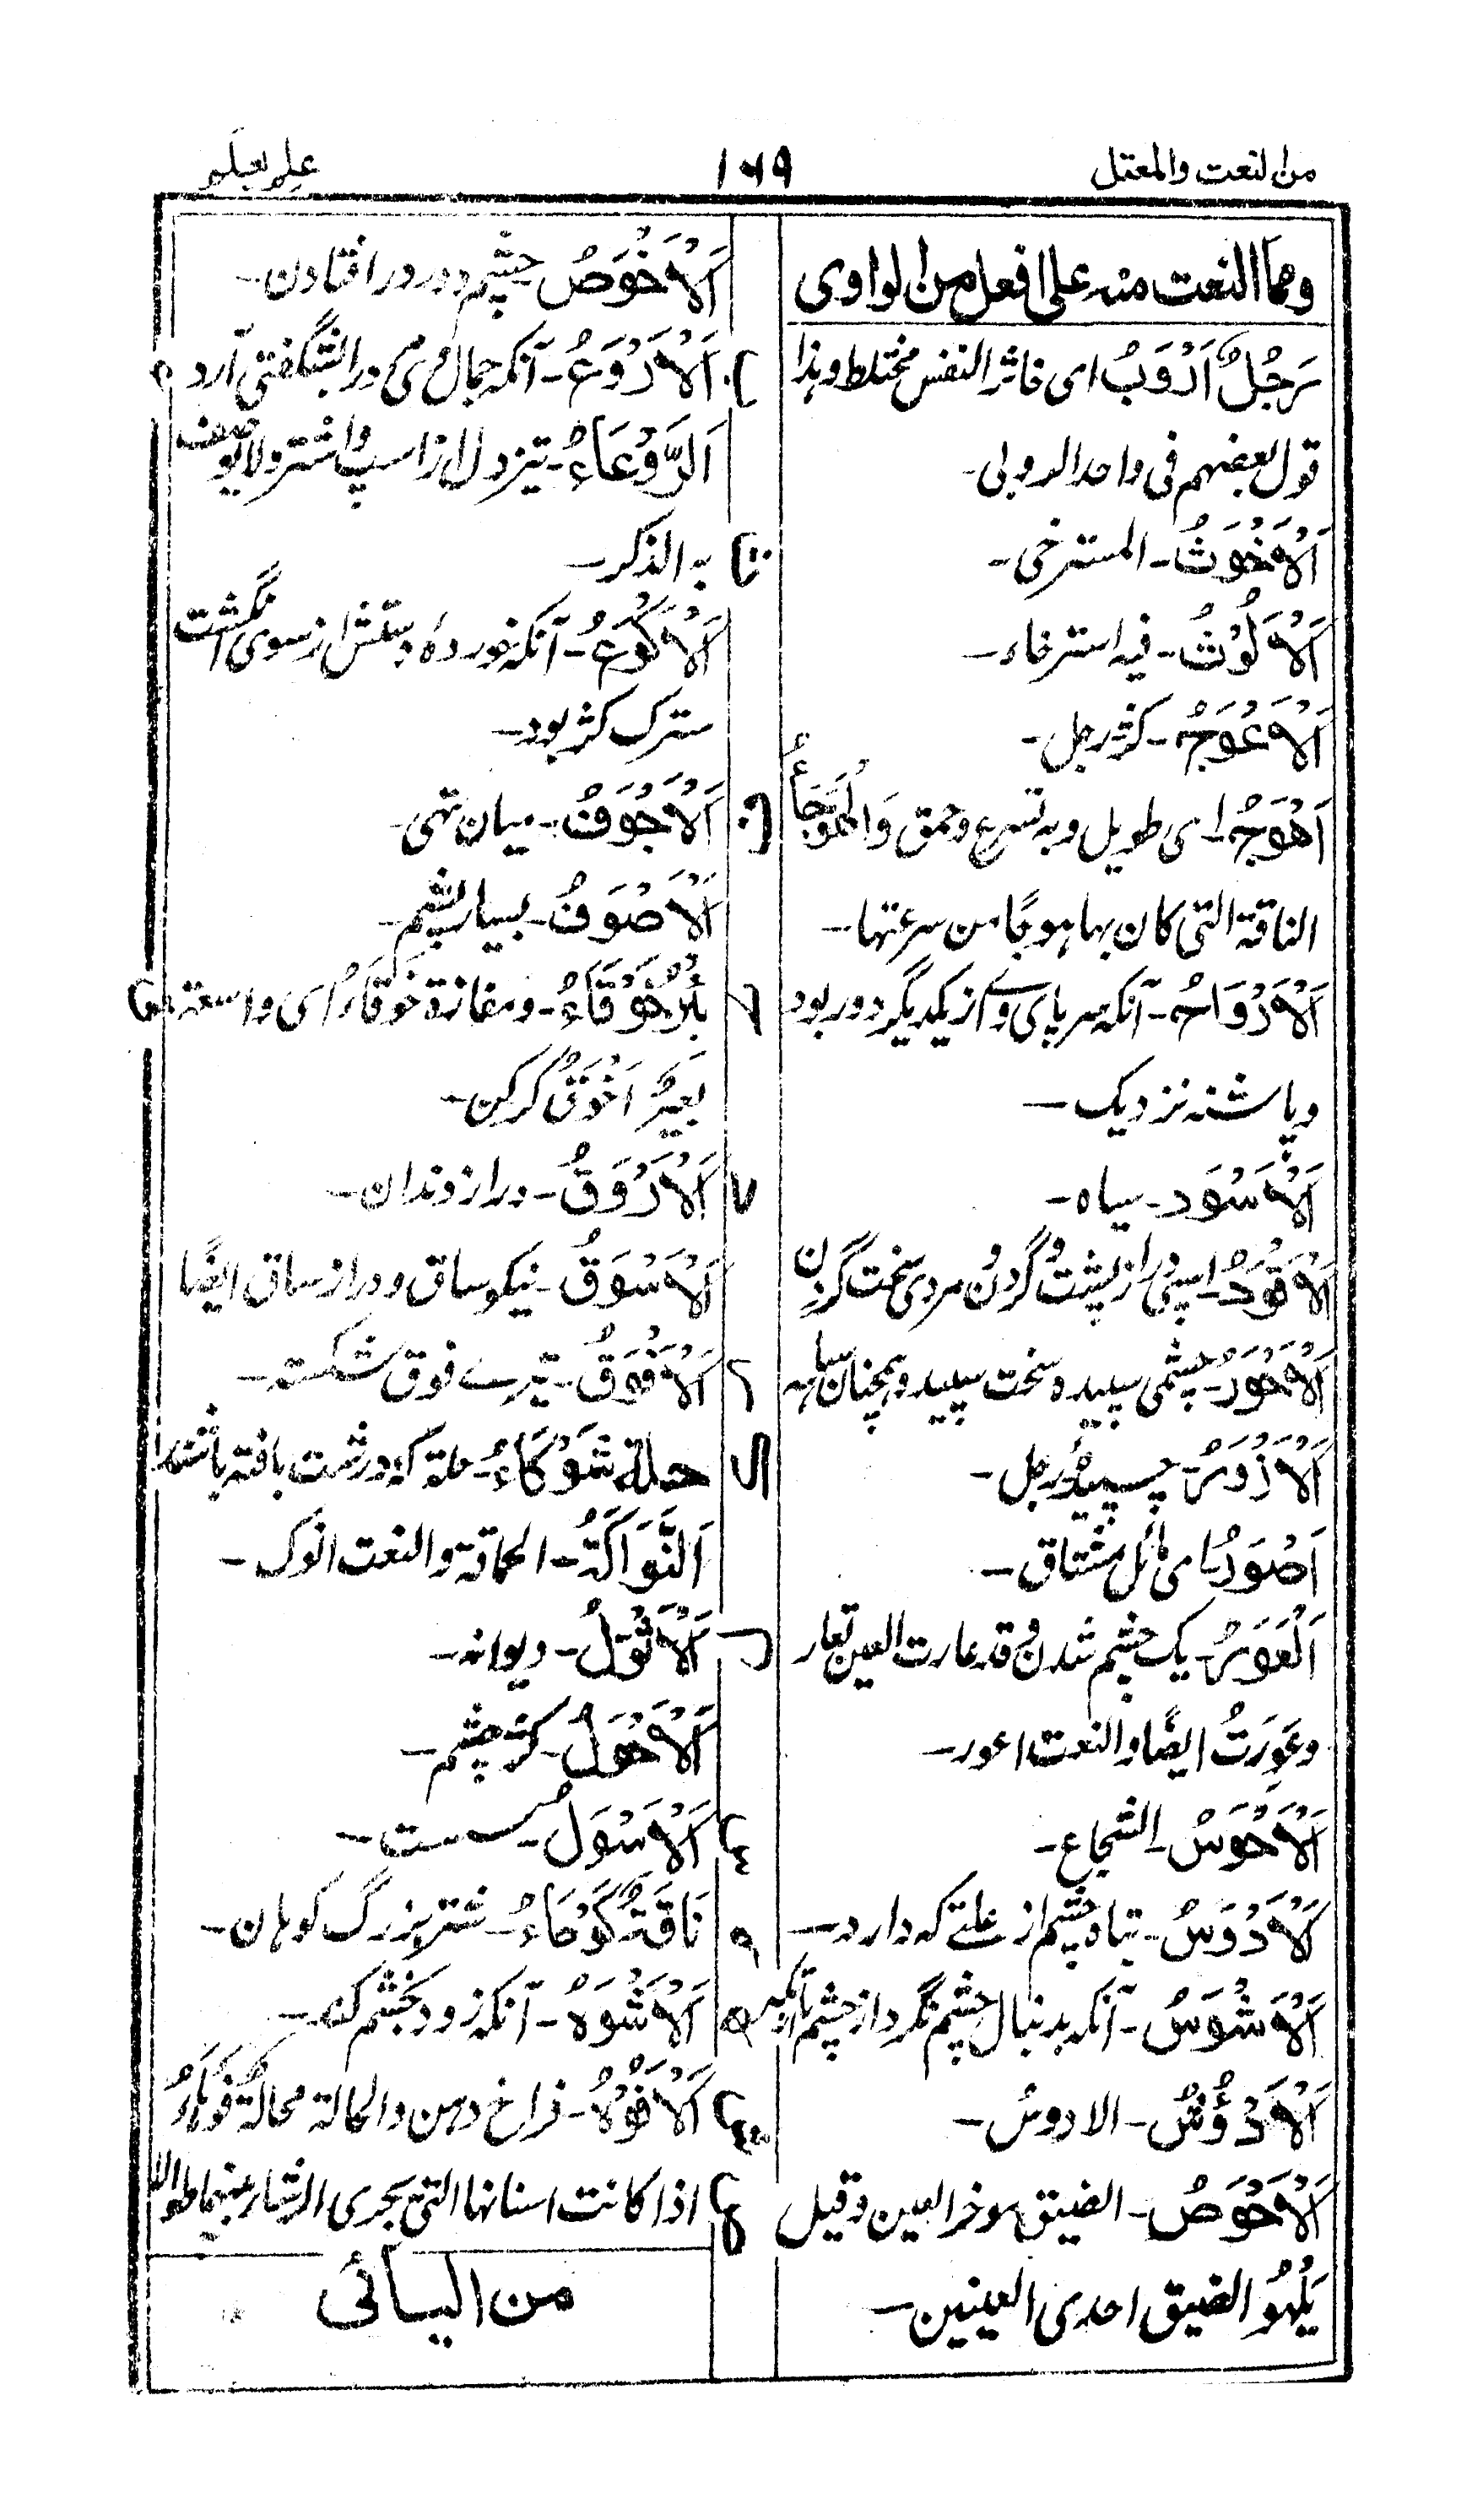 من النعت والمعتل
۱۶۹
علم یعلم
ومما النعت منه علی افعل من الواوی
رَجُلٌ اَرْوَبُ ای خاثر النفس مختلط وہذا
قول بعضہم فی واحد الروبی۔
اَلْاَخْوَثُ۔ المسترخی۔
اَلْاَلْوَثُ۔ فیہ استرخاء۔
اَلْاَعْوَجُ۔ کژ رجل۔
اَهْوَجُ۔ ای طویل وبہ تسرع وحمق وَالْهَوْجَاءُ
الناقۃ التی کان بہا ہوجًا من سرعتہا۔
اَلْاَرْوَاحُ۔ آنکہ سرپای وے از یکدیگر دور بود
وپاشنہ نزدیک۔
اَلْاَسْوَد۔ سیاہ۔
اَلْاَقْوَدُ۔ اسپی دراز پشت وگردن و مردی سخت گردن
اَلْاَحْوَرُ۔ چشمی سپیدہ سخت سپید وہمچنان سیاہہ
اَلْاَزْوَرُ۔ چسپیدہ رجل۔
اَصْوَرُ ای مائل مشتاق۔
اَلْعَوَرُ۔ یک چشم شدن وقد عارت العین تعار
وعَوِرَتْ ایضًا والنعت اعور۔
اَلْاَحْوَسُ۔ الشجاع۔
اَلْاَدْوَسُ۔ تباہ چشم از علتے کہ دارد۔
اَلْاَشْوَسُ۔ آنکہ بدنبال چشم نگرد از چشم
اَلْاَدْوَشُ۔ الادوسُ۔
اَلْاَحْوَصُ۔ الضیق موخر العین وقیل
بَلْ هُوَ الضیق احدی العینین۔
اَلْاَخْوَصُ چشم دور در افتادن۔
اَلْاَرْوَعُ۔ آنکہ جمال مردم را بشگفتی آرد
اَلرَّوْعَاءُ۔ تیز دل از اسپ واشتر ولا یوصف
بہ الذکر۔
اَلْاَکْوَعُ۔ آنکہ خوردہ دستش از سوی انگشت
سترک کژ بود۔
اَلْاَجْوَفُ۔ میان تہی۔
اَلْاَصْوَفُ۔ بسیار پشم۔
بِئْرٌ خَوْقَاءُ۔ ومفازۃ خَوْقَاءُ ای واسعۃ
بَعِیرٌ اَخْوَقُ گرگن۔
اَلْاَرْوَقُ۔ دراز دندان۔
اَلْاَسْوَقُ۔ نیکو ساق ودراز ساق ایضًا
اَلْاَفْوَقُ۔ تیرے فوق شکستہ۔
حلة شَوْكَاءُ۔ حلۃ کہ درشت بافتہ باشند
اَلنَّوَاكَةُ۔ الحماقۃ والنعت انوک۔
اَلْاَثْوَلُ۔ دیوانہ۔
اَلْاَحْوَلُ۔ کژ چشم۔
اَلْاَسْوَلُ۔ سست۔
نَاقَةٌ كَوْمَاءُ۔ شتر بزرگ کوہان۔
اَلْاَشْوَهُ۔ آنکہ زود بخشم کند۔
اَلْاَفْوَهُ۔ فراخ دہن والمحالۃ محالۃ فوہاءُ
اذا کانت اسنانہا التی یجری الرشاء بینہا طوالا
من الیائی